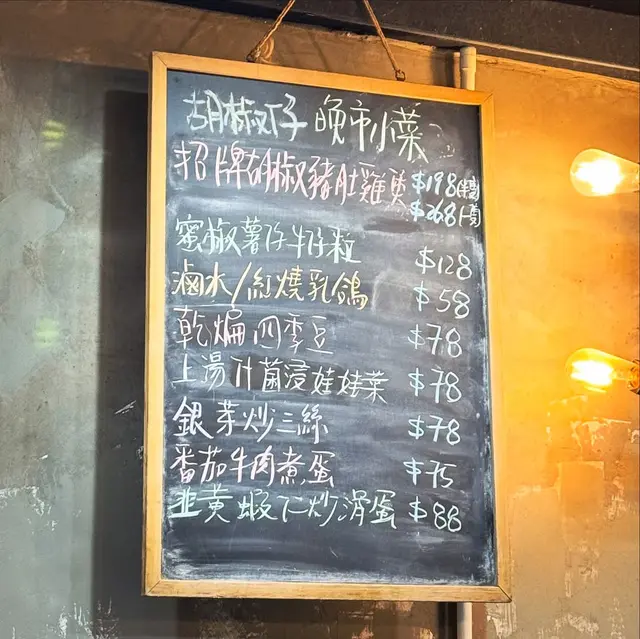 胡椒仔 晚市小菜
招牌胡椒豬肚雞煲 $198(半)
$268(隻)
蜜椒薯仔牛仔粒 $128
滷水/紅燒乳鴿 $58
乾煸四季豆 $78
上湯什菌浸娃娃菜 $78
銀芽炒三絲 $78
番茄牛肉煮蛋 $75
韭黃蝦仁炒滑蛋 $88